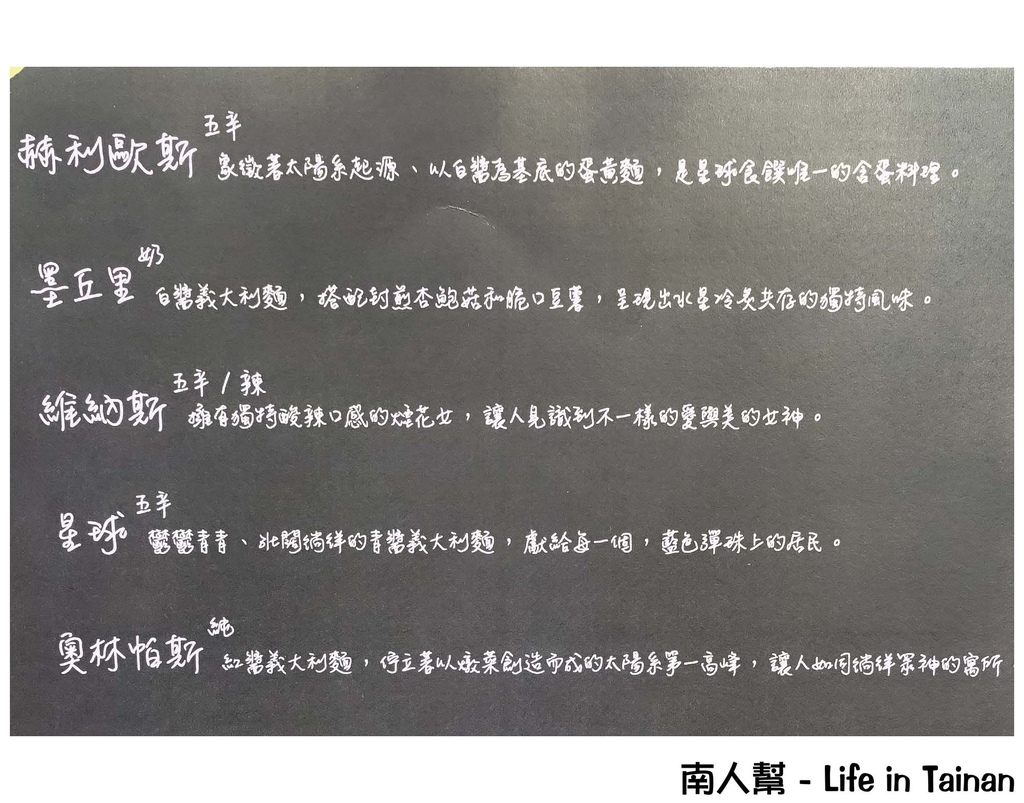 赫利歐斯 五辛 象徵著太陽系起源、以白醬為基底的蛋黃麵，是星球食饌唯一的含蛋料理。
墨丘里 奶 白醬義大利麵，搭配封煎杏鮑菇和脆口豆薯，呈現出水星冷炙共存的獨特風味。
維納斯 五辛/辣 擁有獨特酸辣口感的煙花女，讓人見識到不一樣的愛與美的女神。
星球 五辛 鬱鬱青青、壯闊徜徉的青醬義大利麵，獻給每一個，藍色彈珠上的居民。
奧林帕斯 純 紅醬義大利麵，佇立著以燉菜創造而成的太陽系第一高峰，讓人如同徜徉眾神的寓所
南人幫 - Life in Tainan